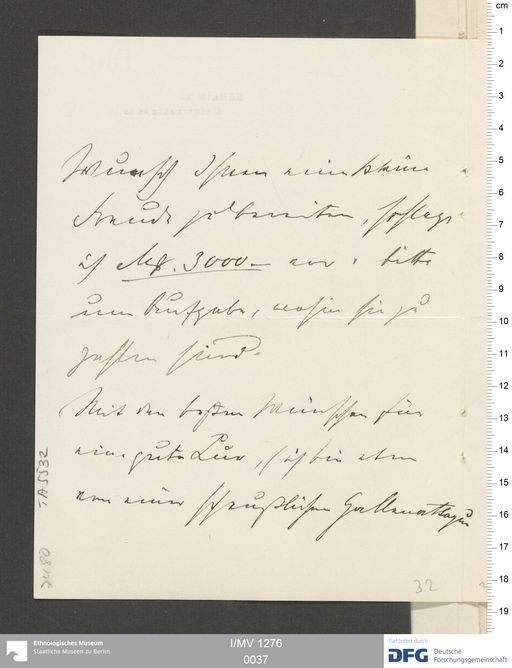 Wunsch Ihnen eine kleine
Freude zu bereiten, schlage
ich Mk. 3000.– vor u. bitte
um Aufgabe, wohin sie zu
zahlen sind.
Mit den besten Wünschen für
eine gute Kur, (ich bin eben
von einer scheußlichen Gallenattaque
TA5532
32
cm
1
2
3
4
5
6
7
8
9
10
11
12
13
14
15
16
17
18
19
Ethnologisches Museum
Staatliche Museen zu Berlin
I/MV 1276
0037
Gefördert durch:
DFG Deutsche
Forschungsgemeinschaft